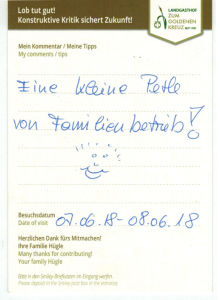 Lob tut gut!
Konstruktive Kritik sichert Zukunft!
LANDGASTHOF
ZUM
GOLDENEN
KREUZ
Mein Kommentar / Meine Tipps
My comments / tips
Eine kleine Perle
von Familienbetrieb!
Besuchsdatum
Date of visit
07.06.18-08.06.18
Herzlichen Dank fürs Mitmachen!
Ihre Familie Hügle
Many thanks for contributing!
Your family Hügle
Bitte in den Smiley-Briefkasten im Eingang werfen.
Please deposit in the Smiley post box in the entrance.